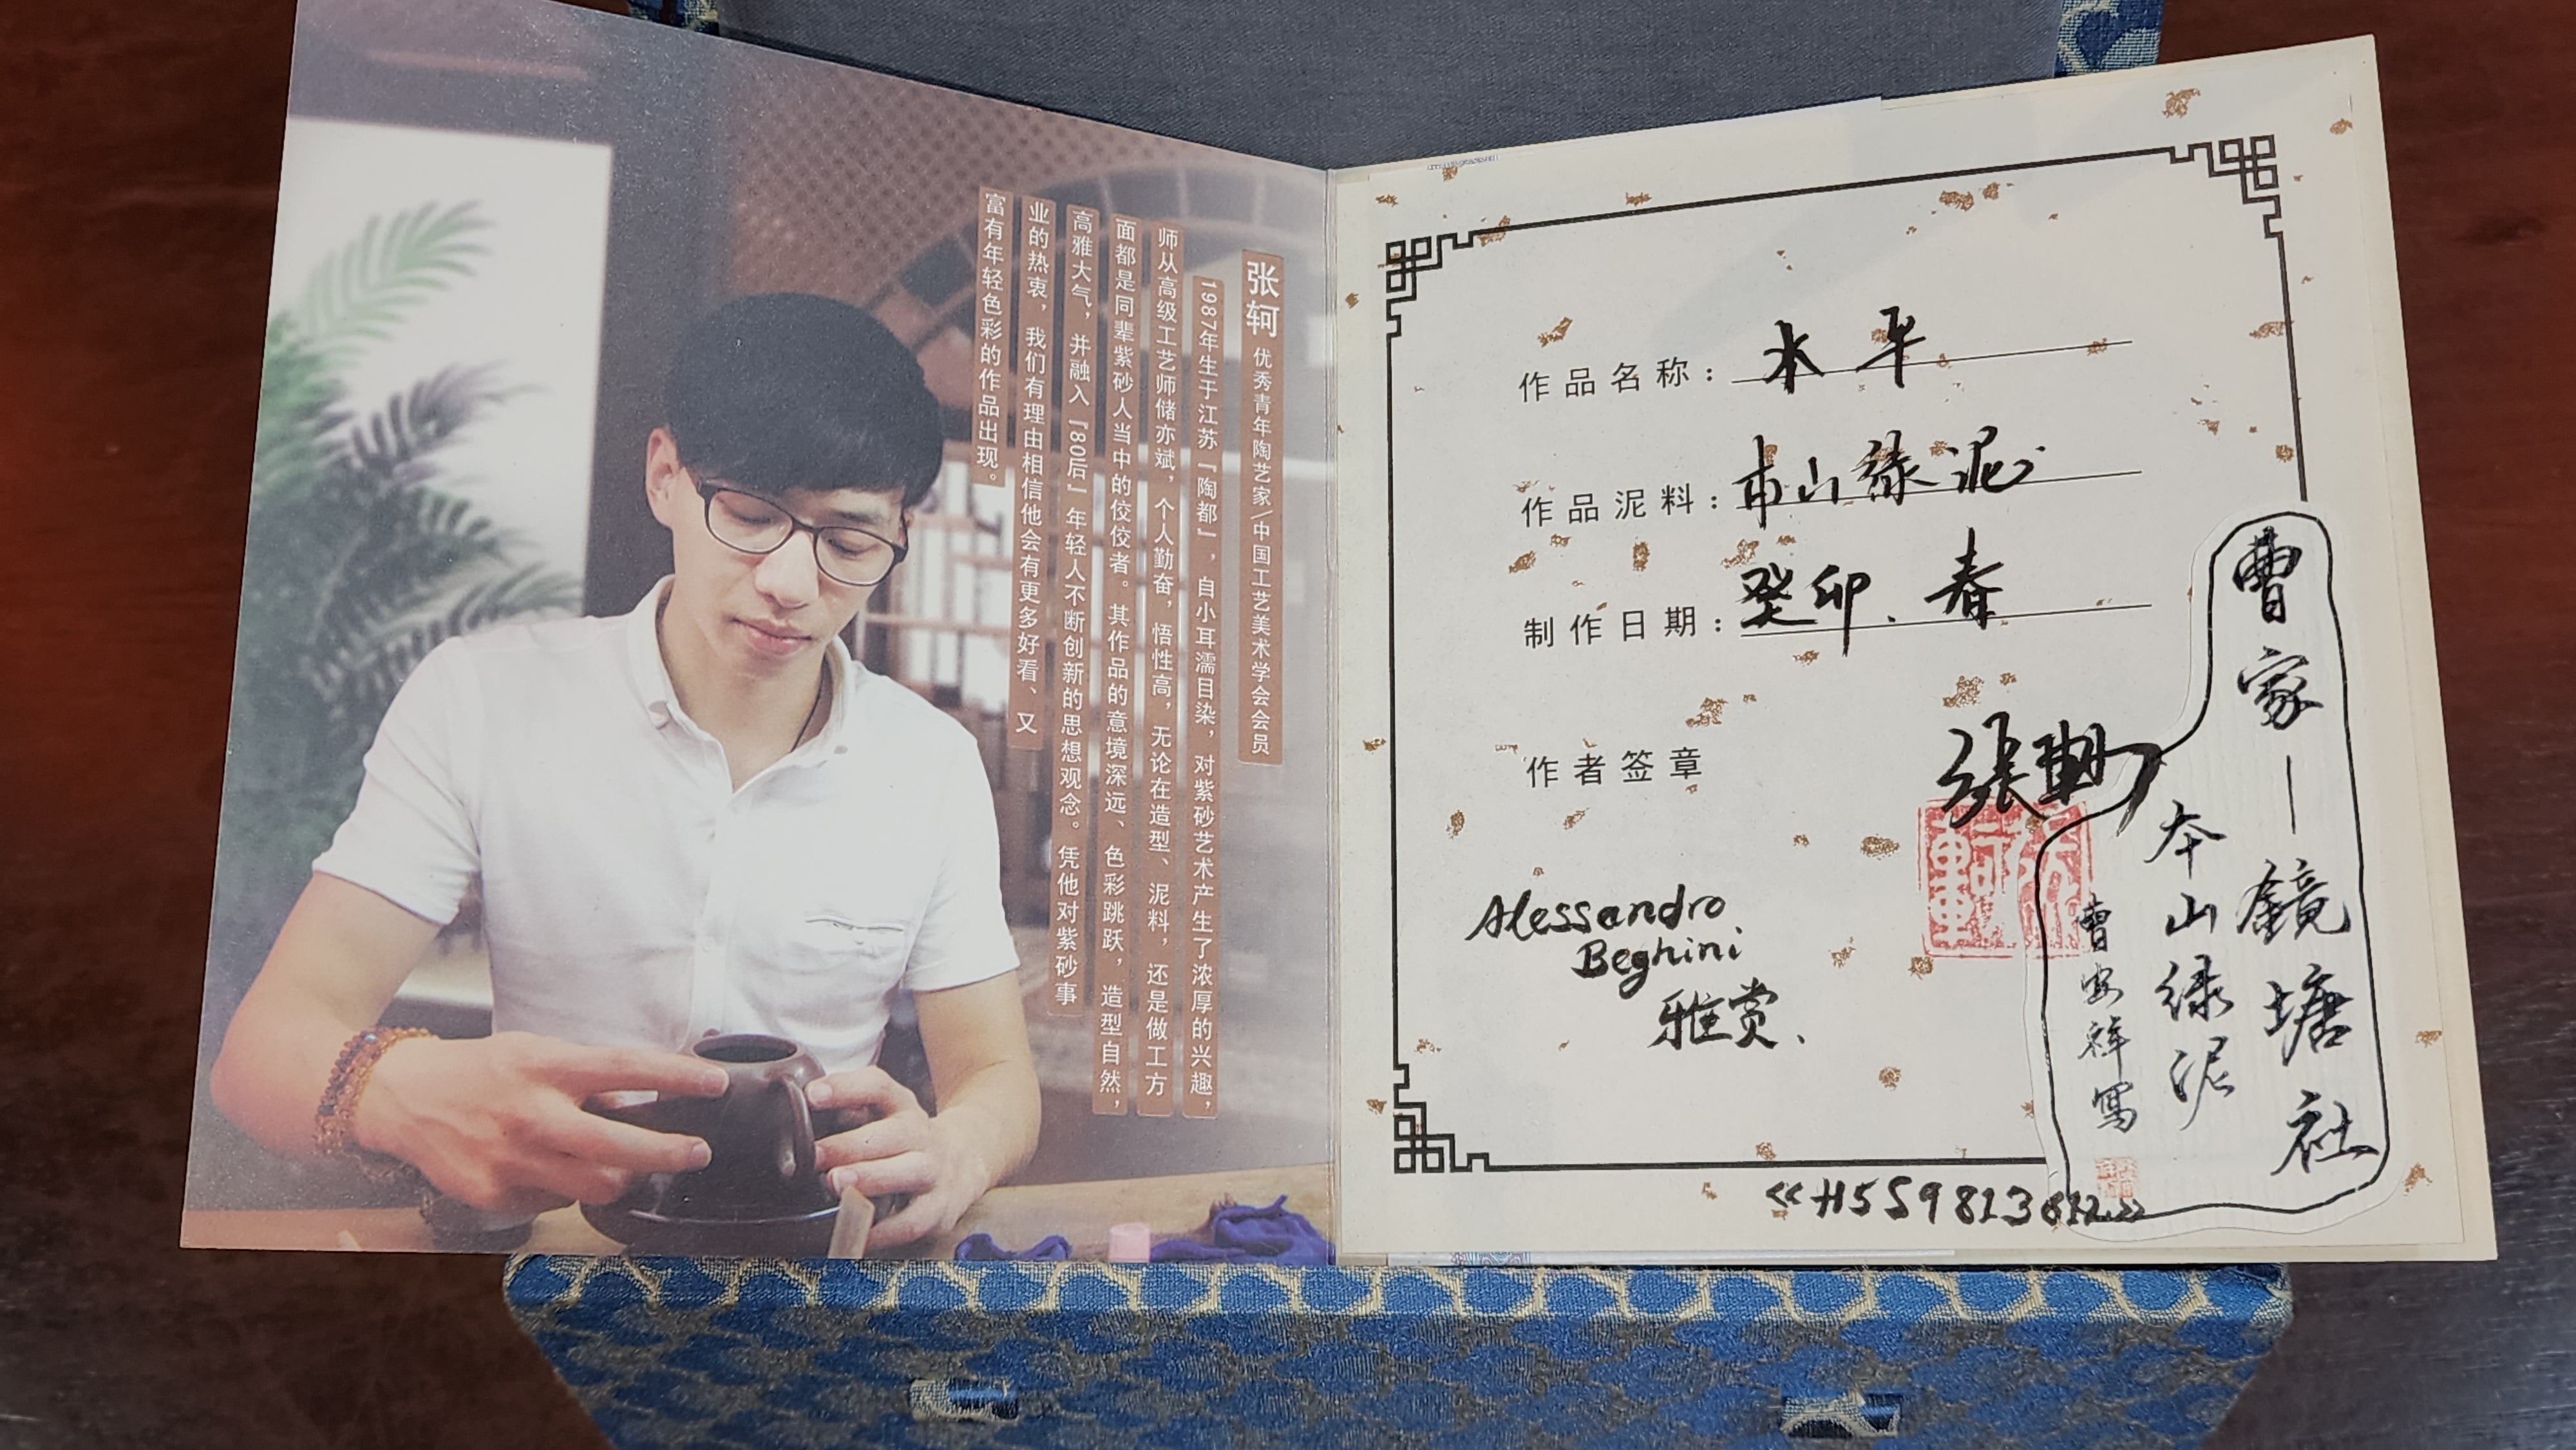 张轲 优秀青年陶艺家/中国工艺美术学会会员
1987年生于江苏『陶都』，自小耳濡目染，对紫砂艺术产生了浓厚的兴趣，
师从高级工艺师储亦斌，个人勤奋，悟性高，无论在造型、泥料，还是做工方
面都是同辈紫砂人当中的佼佼者。其作品的意境深远、色彩跳跃，造型自然，
高雅大气，并融入『80后』年轻人不断创新的思想观念。凭他对紫砂事
业的热衷，我们有理由相信他会有更多好看、又
富有年轻色彩的作品出现。
作品名称：水平
作品泥料：本山绿泥
制作日期：癸卯.春
作者签章 张轲
Alessandro
Beghini
雅赏.
曹家—鏡塘社
本山绿泥
曹安祥写